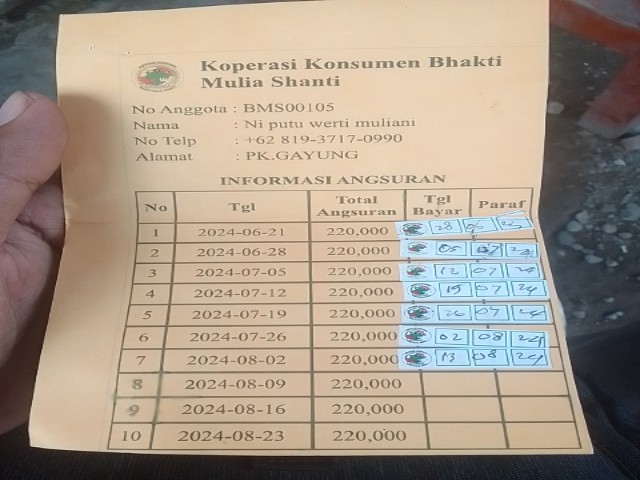 Koperasi Konsumen Bhakti
Mulia Shanti
No Anggota : BMS00105
Nama : Ni putu werti muliani
No Telp : +62 819-3717-0990
Alamat : PK.GAYUNG
INFORMASI ANGSURAN
No Tgl Total Angsuran Tgl Bayar Paraf
1 2024-06-21 220,000 28 06
2 2024-06-28 220,000 05 07 24
3 2024-07-05 220,000 12 07 24
4 2024-07-12 220,000 19 07 24
5 2024-07-19 220,000 26 07 24
6 2024-07-26 220,000 02 08 24
7 2024-08-02 220,000 13 08 24
8 2024-08-09 220,000
9 2024-08-16 220,000
10 2024-08-23 220,000